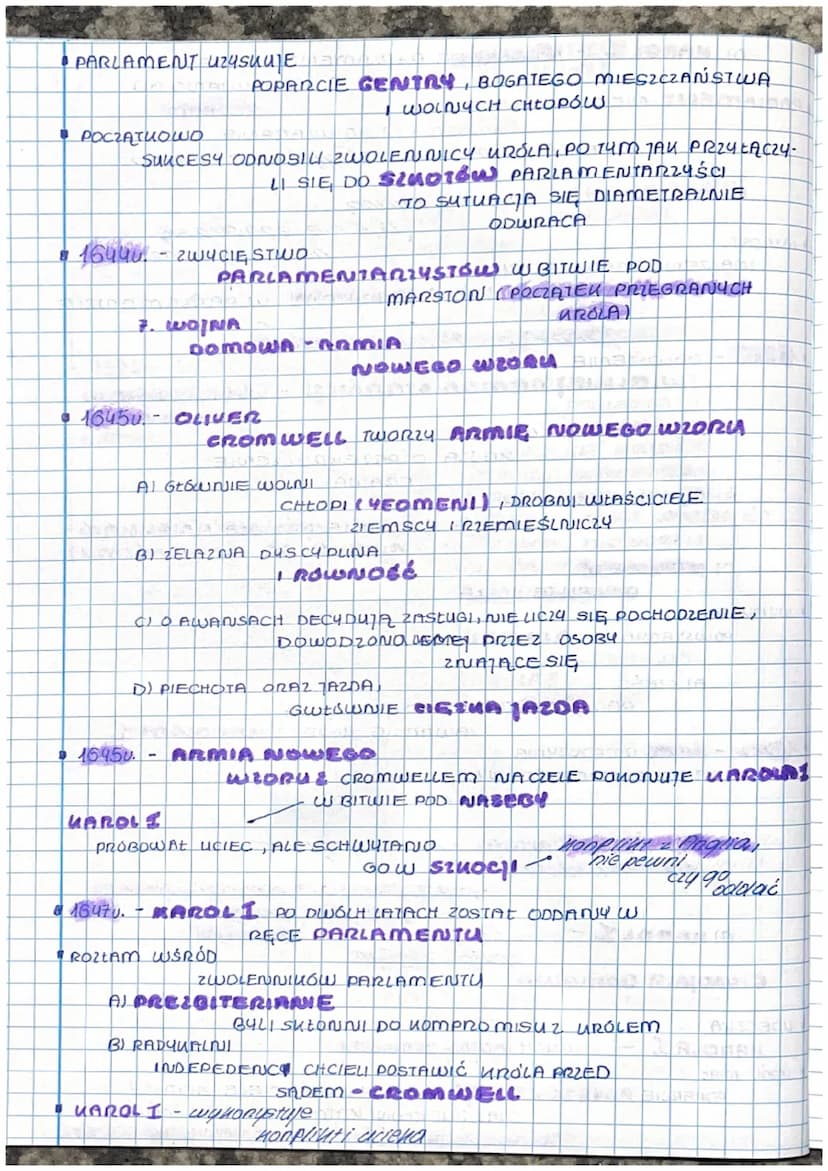 • PARLAMENT UZYSKUJE
POPARCIE GENTRY, BOGATEGO MIESZCZAŃSTWA
I WOLNYCH CHŁOPÓW
• POCZĄTKOWO
SUKCESY ODNOSILI ZWOLENNICY KRÓLA, PO TYM JAK PRZYŁĄCZY-
LI SIĘ DO SZKOTÓW PARLAMENTARZYŚCI
TO SYTUACJA SIĘ DIAMETRALNIE
ODWRACA
• 1644r. - ZWYCIĘSTWO
PARLAMENTARZYSTÓW W BITWIE POD
MARSTON (POCZĄTEK PRZEGRANYCH
KRÓLA)
7. WOJNA
DOMOWA - ARMIA
NOWEGO WZORU
• 1645r. - OLIVER
CROMWELL TWORZY ARMIĘ NOWEGO WZORU
A) GŁÓWNIE WOLNI
CHŁOPI (YEOMENI), DROBNI WŁAŚCICIELE
ZIEMSCY I RZEMIEŚLNICZY
B) ŻELAZNA DYSCYPLINA
I RÓWNOŚĆ
C) O AWANSACH DECYDUJĄ ZASŁUGI, NIE LICZY SIĘ POCHODZENIE,
DOWODZONO PRZEZ OSOBY
ZNAJĄCE SIĘ
D) PIECHOTA ORAZ JAZDA,
GWŁÓWNIE CIĘŻKA JAZDA
• 1645r. - ARMIA NOWEGO
WZORU Z CROMWELLEM NA CZELE POKONUJE KAROLA I
W BITWIE POD NASEBY
KAROL I
PRÓBOWAŁ UCIEC, ALE SCHWYTANO
GO W SZKOCJI
konflikt z Anglią,
nie pewni
czy go
oddać
• 1647r. - KAROL I PO DWÓCH LATACH ZOSTAŁ ODDANY W
RĘCE PARLAMENTU
• ROZŁAM WŚRÓD
ZWOLENNIKÓW PARLAMENTU
A) PREZBITERIANIE
BYLI SKŁONNI DO KOMPROMISU Z KRÓLEM
B) RADYKALNI
INDEPEDENCI CHCIELI POSTAWIĆ KRÓLA PRZED
SĄDEM - CROMWELL
• KAROL I - wykorzystuje
konflikt i ucieka